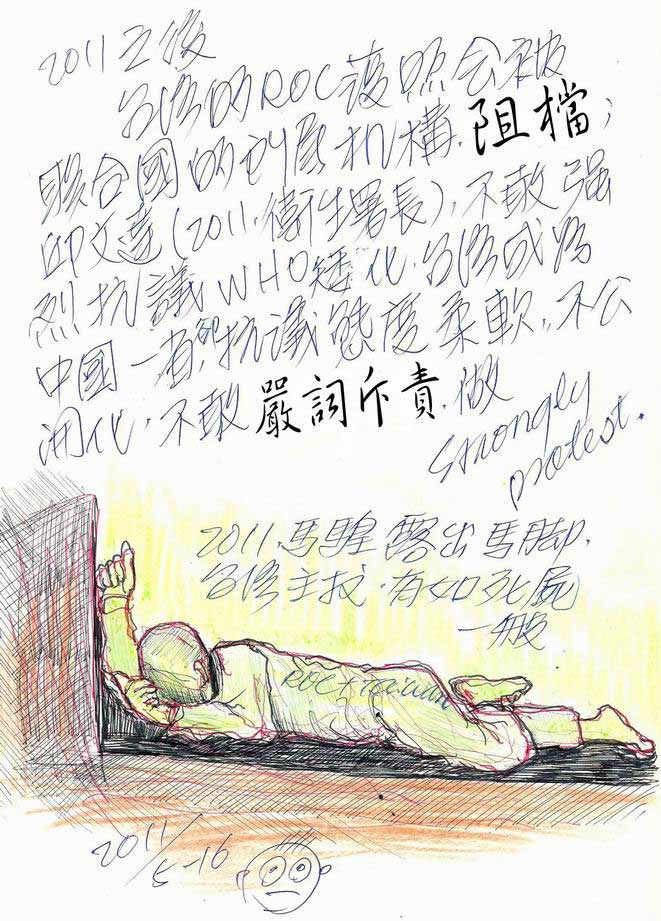 2011之後
台灣的ROC護照会被
聯合國的附屬机構.阻檔;
邱文達(2011.衛生署長).不敢强
烈抗議WHO矮化.台灣成為
中國一省.抗議態度柔軟,不公
開化.不敢嚴詞斥責.做
strongly
protest.
2011.馬騜露出馬脚.
台灣主权.有如死屍
一般
ROC+Taiwan
2011/5-16